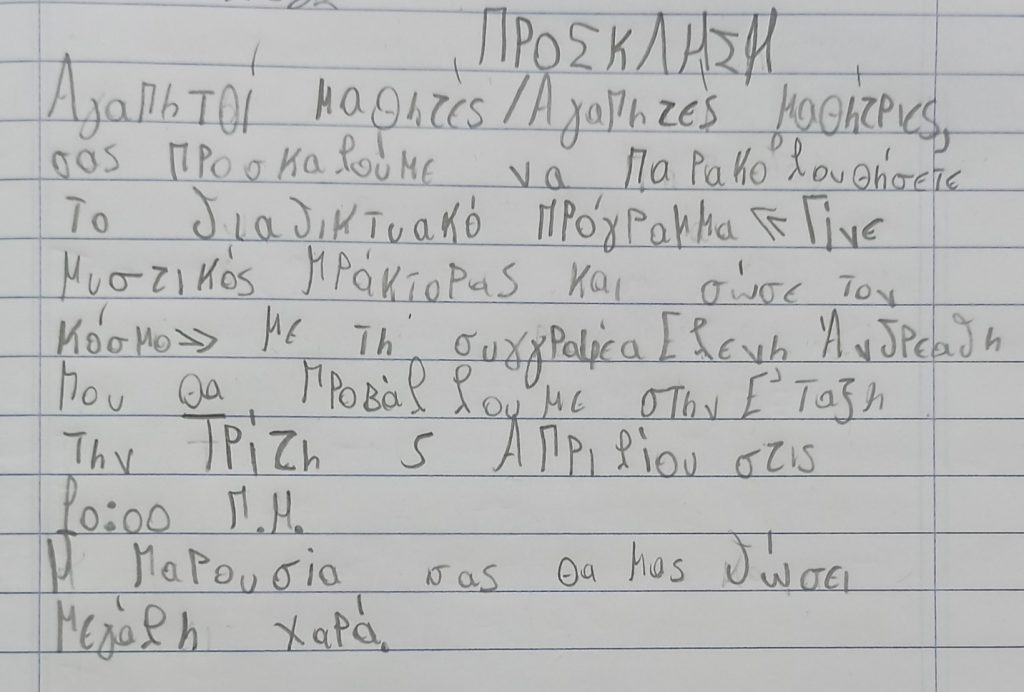 ΠΡΟΣΚΛΗΣΗ
Αγαπητοί μαθητές/Αγαπητές μαθήτριες,
σας προσκαλούμε να παρακολουθήσετε
το διαδικτυακό πρόγραμμα «Γίνε
μυστικός πράκτορας και σώσε τον
κόσμο» με τη συγγραφέα Ελένη Ανδρεάδη
που θα προβάλλουμε στην Ε' τάξη
την Τρίτη 5 Απριλίου στις
10:00 π.μ.
Η παρουσία σας θα μας δώσει
μεγάλη χαρά.